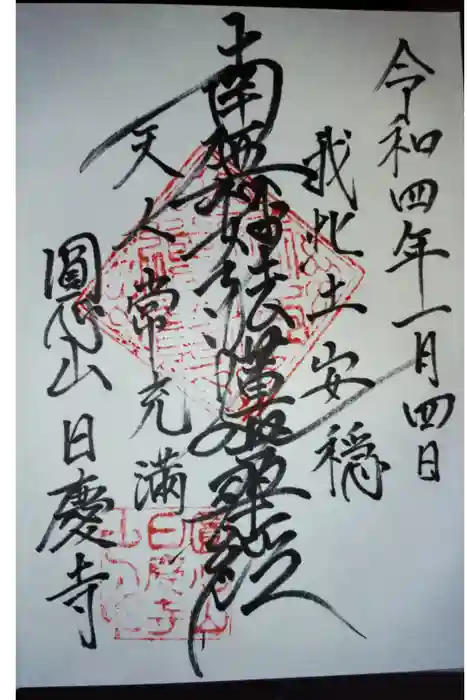 令和四年一月四日
我此土安穏
南無妙法蓮華経
天人常充満
圓心山 日慶寺
日慶寺